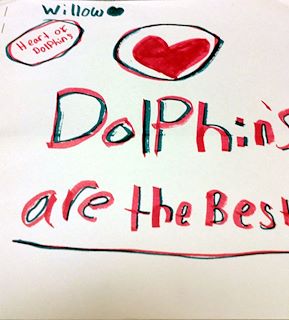 Willow
Heart of
DOlphins
Dolphin's
are the Best